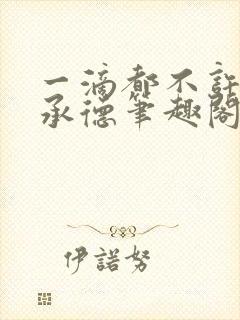 一滴都不許
承德筆趣閣
伊諾努